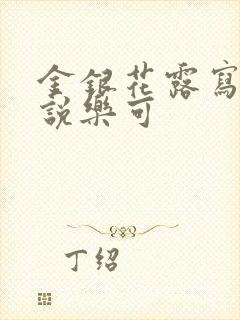 金銀花露寫
說樂可
丁绍